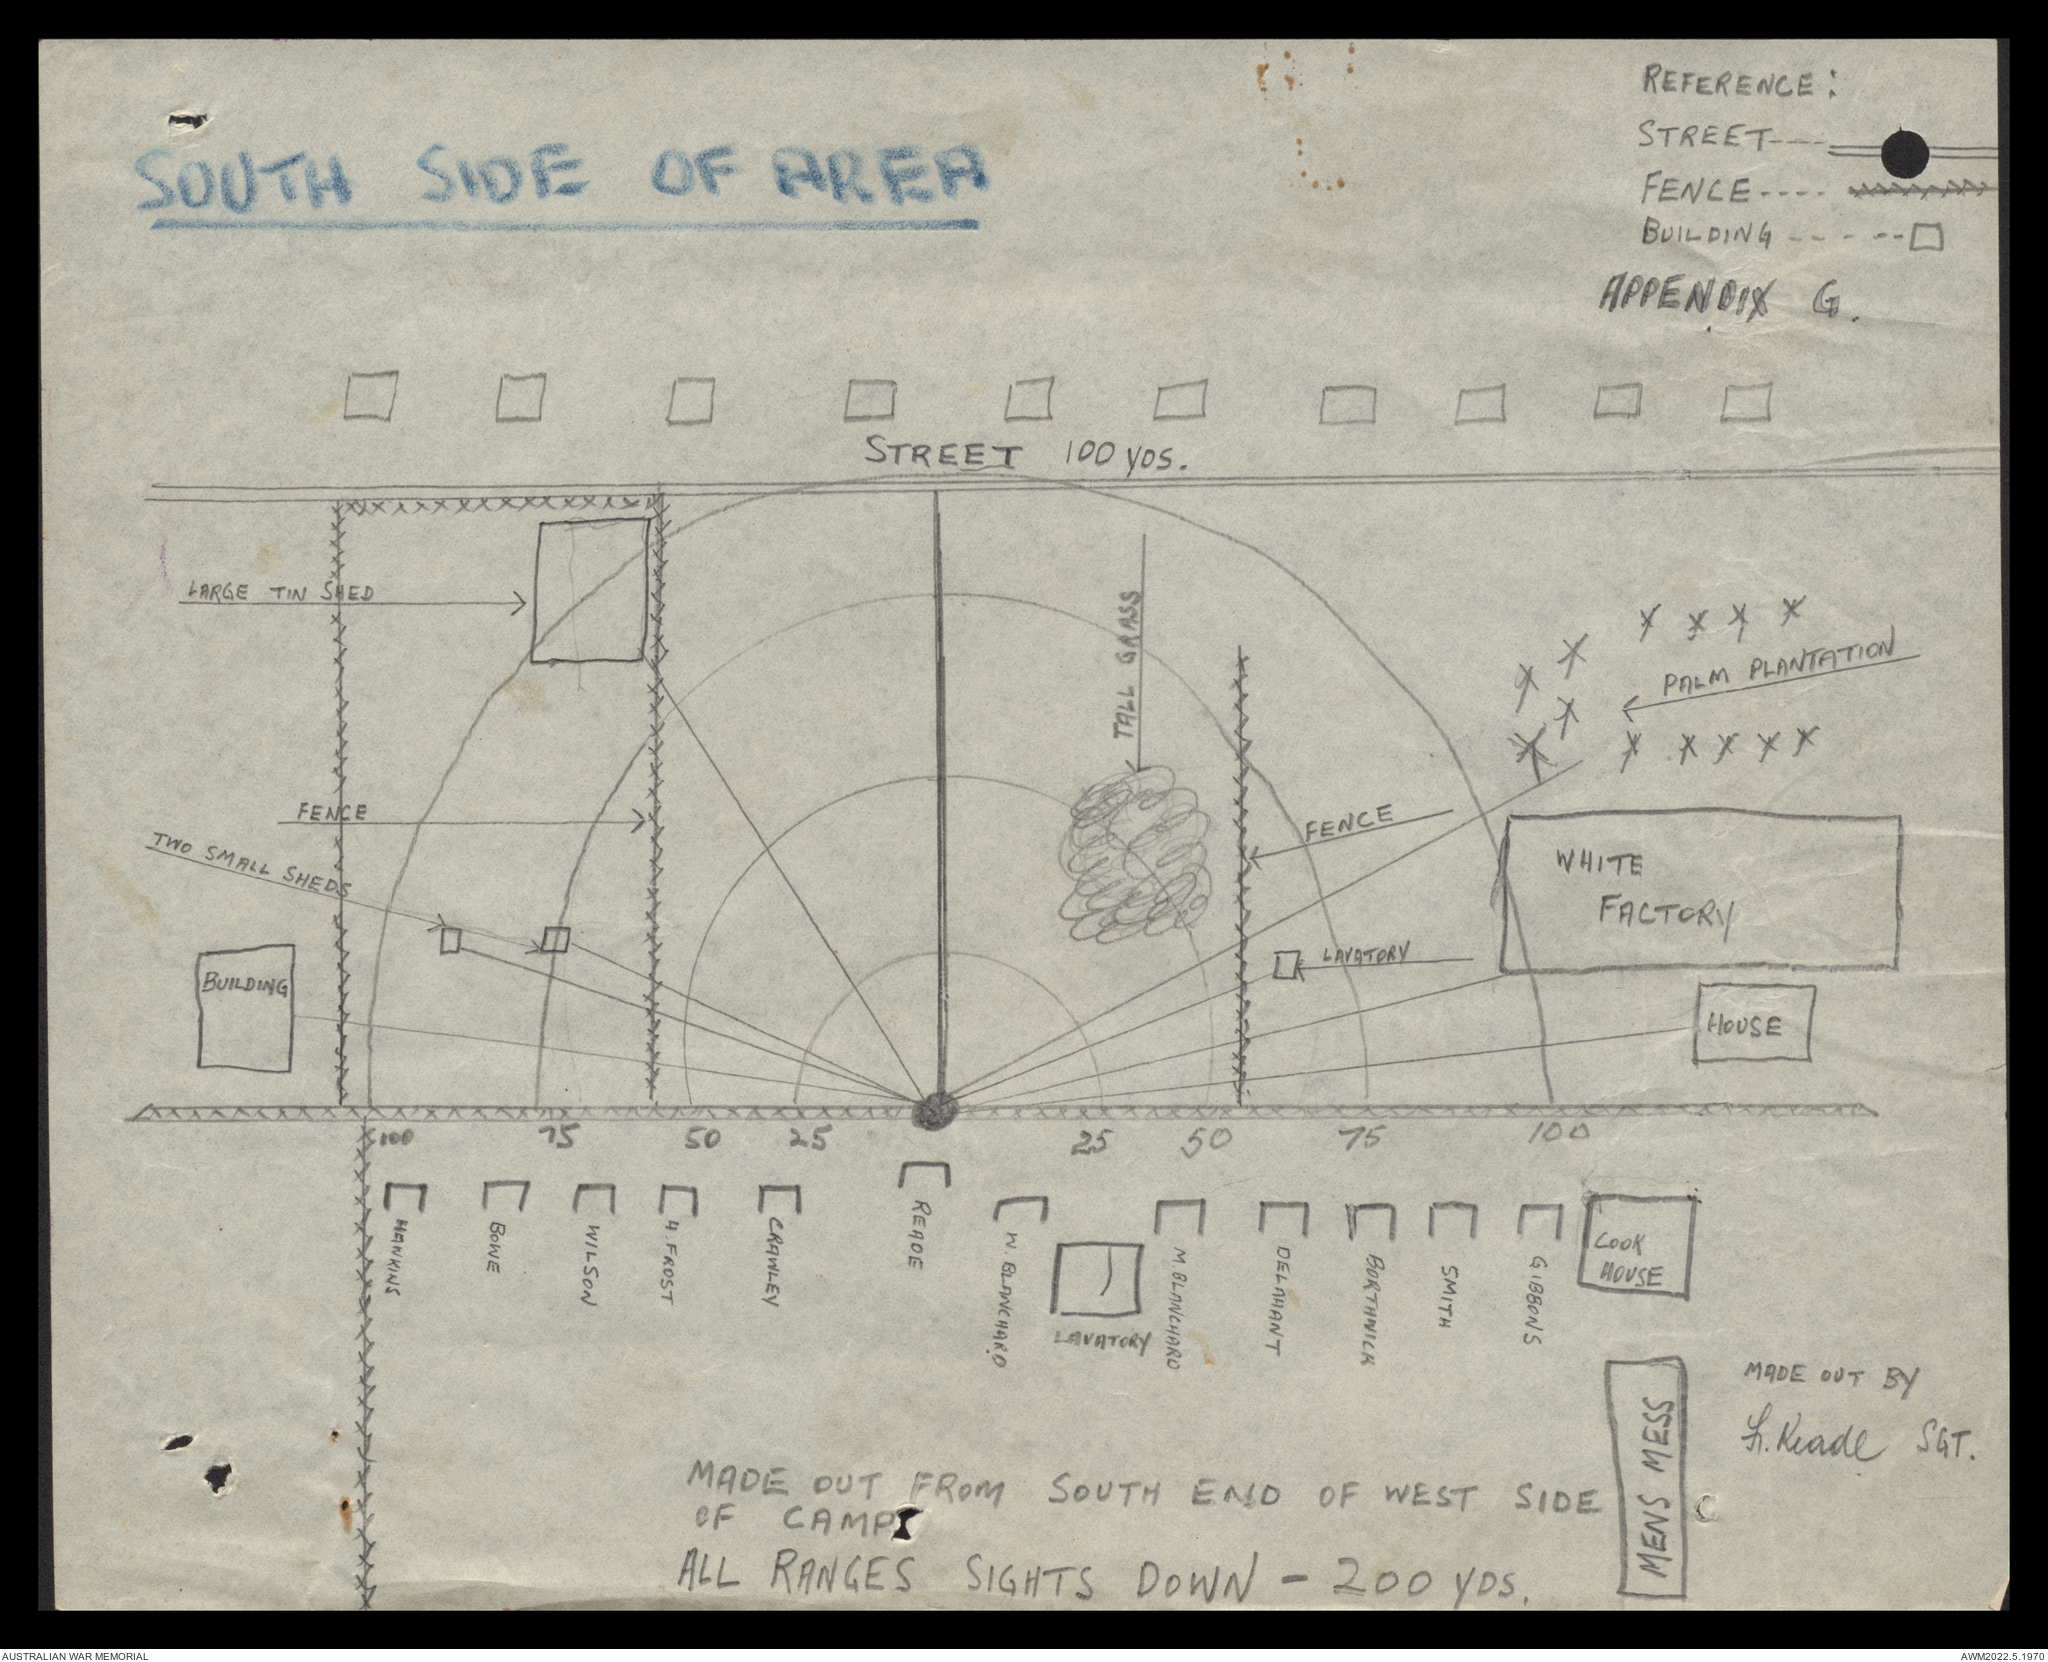 REFERENCE:
STREET----
FENCE----
BUILDING-----
APPENDIX G.
SOUTH SIDE OF AREA
STREET 100 YDS.
LARGE TIN SHED
TALL GRASS
PALM PLANTATION
FENCE
FENCE
TWO SMALL SHEDS
WHITE
FACTORY
LAVATORY
BUILDING
HOUSE
100 75 50 25 25 50 75 100
HAWKINS
BOWE
WILSON
H. FROST
CRAWLEY
READE
W. BLANCHARD
LAVATORY
M. BLANCHARD
DELAHANT
BORTHNICK
SMITH
GIBBONS
COOK
HOUSE
MENS MESS
MADE OUT BY
Reade SGT.
MADE OUT FROM SOUTH END OF WEST SIDE
OF CAMP
ALL RANGES SIGHTS DOWN - 200 YDS.
AUSTRALIAN WAR MEMORIAL
AWM2022.5.1970